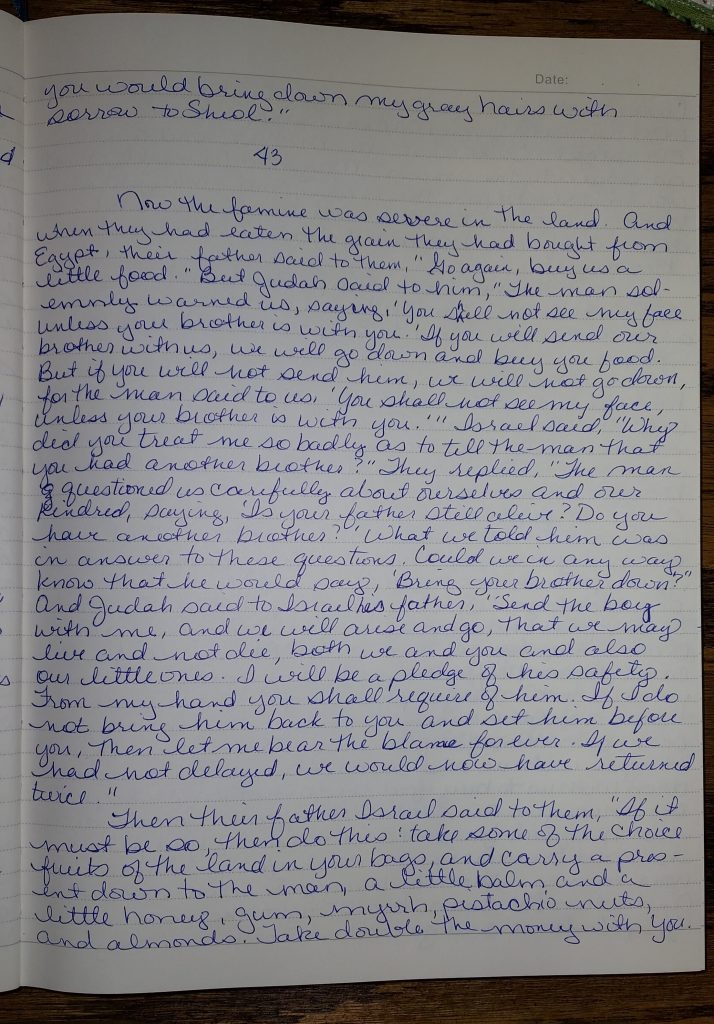 Date:
you would bring down my gray hairs with
sorrow to Sheol."
43
Now the famine was severe in the land. And
when they had eaten the grain they had bought from
Egypt, their father said to them, "Go again, buy us a
little food." But Judah said to him, "The man sol-
emnly warned us, saying, 'You shall not see my face
unless your brother is with you.' If you will send our
brother with us, we will go down and buy you food.
But if you will not send him, we will not go down,
for the man said to us, 'You shall not see my face,
unless your brother is with you.'" Israel said, "Why
did you treat me so badly as to tell the man that
you had another brother?" They replied, "The man
questioned us carefully about ourselves and our
kindred, saying, 'Is your father still alive? Do you
have another brother?' What we told him was
in answer to these questions. Could we in any way
know that he would say, 'Bring your brother down?'"
And Judah said to Israel his father, "Send the boy
with me, and we will arise and go, that we may
live and not die, both we and you and also
our little ones. I will be a pledge of his safety.
From my hand you shall require of him. If I do
not bring him back to you and set him before
you, then let me bear the blame forever. If we
had not delayed, we would now have returned
twice."
Then their father Israel said to them, "If it
must be so, then do this: take some of the choice
fruits of the land in your bags, and carry a pres-
ent down to the man, a little balm and a
little honey, gum, myrrh, pistachio nuts,
and almonds. Take double the money with you.